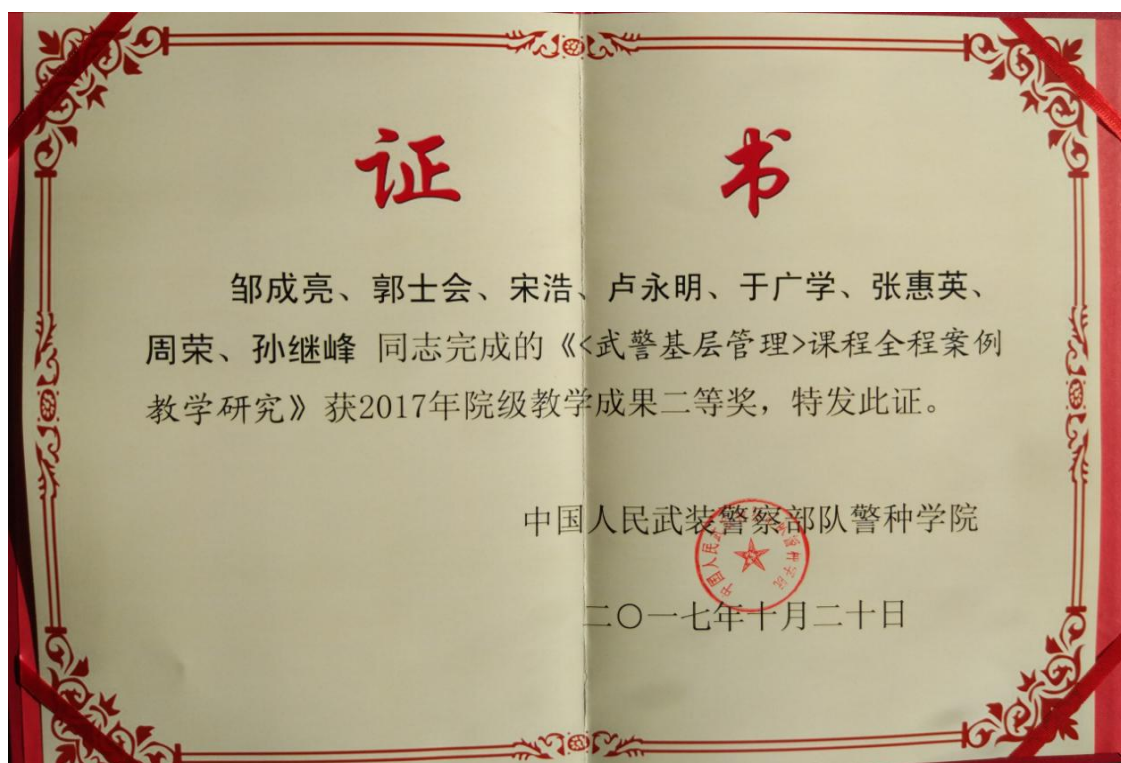 证 书
邹成亮、郭士会、宋浩、卢永明、于广学、张惠英、
周荣、孙继峰 同志完成的《<武警基层管理>课程全程案例
教学研究》获2017年院级教学成果二等奖，特发此证。
中国人民武装警察部队警种学院
二〇一七年十月二十日